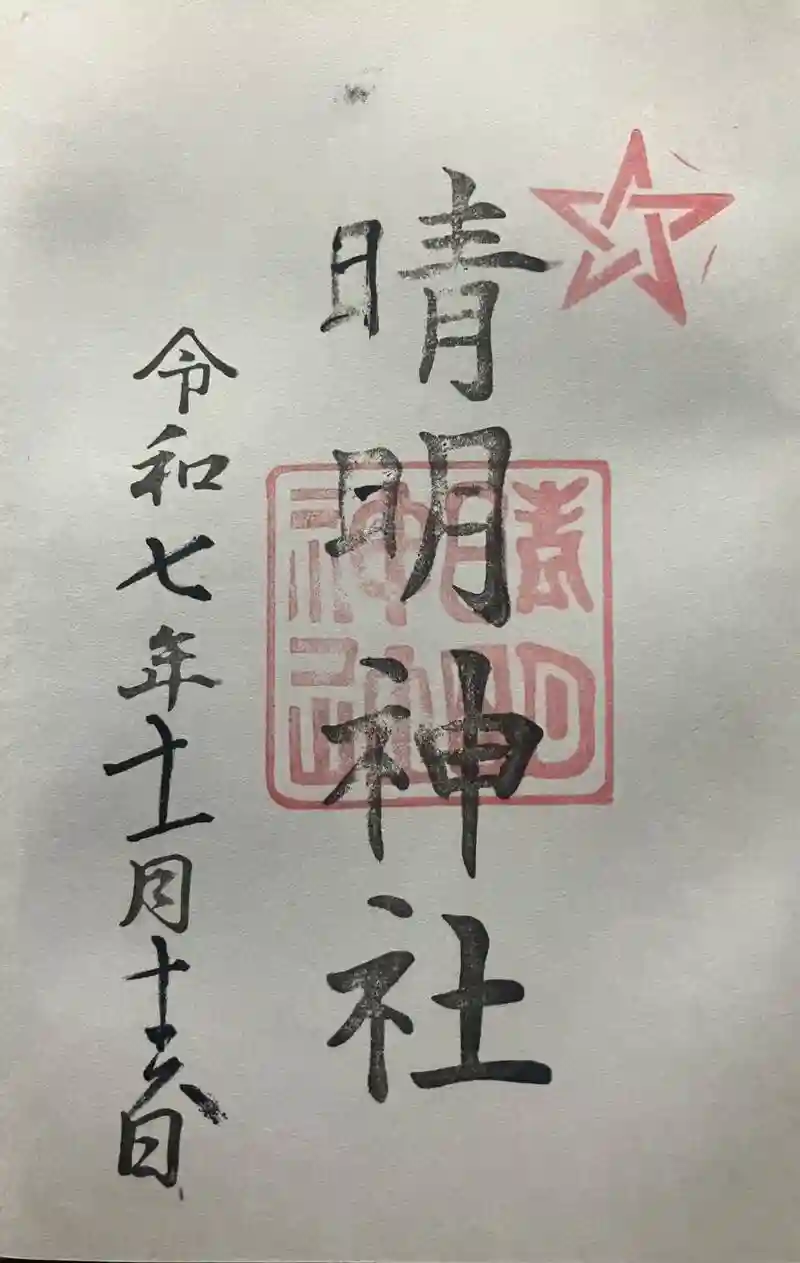 晴明神社
晴明
神社
令和七年十一月十六日